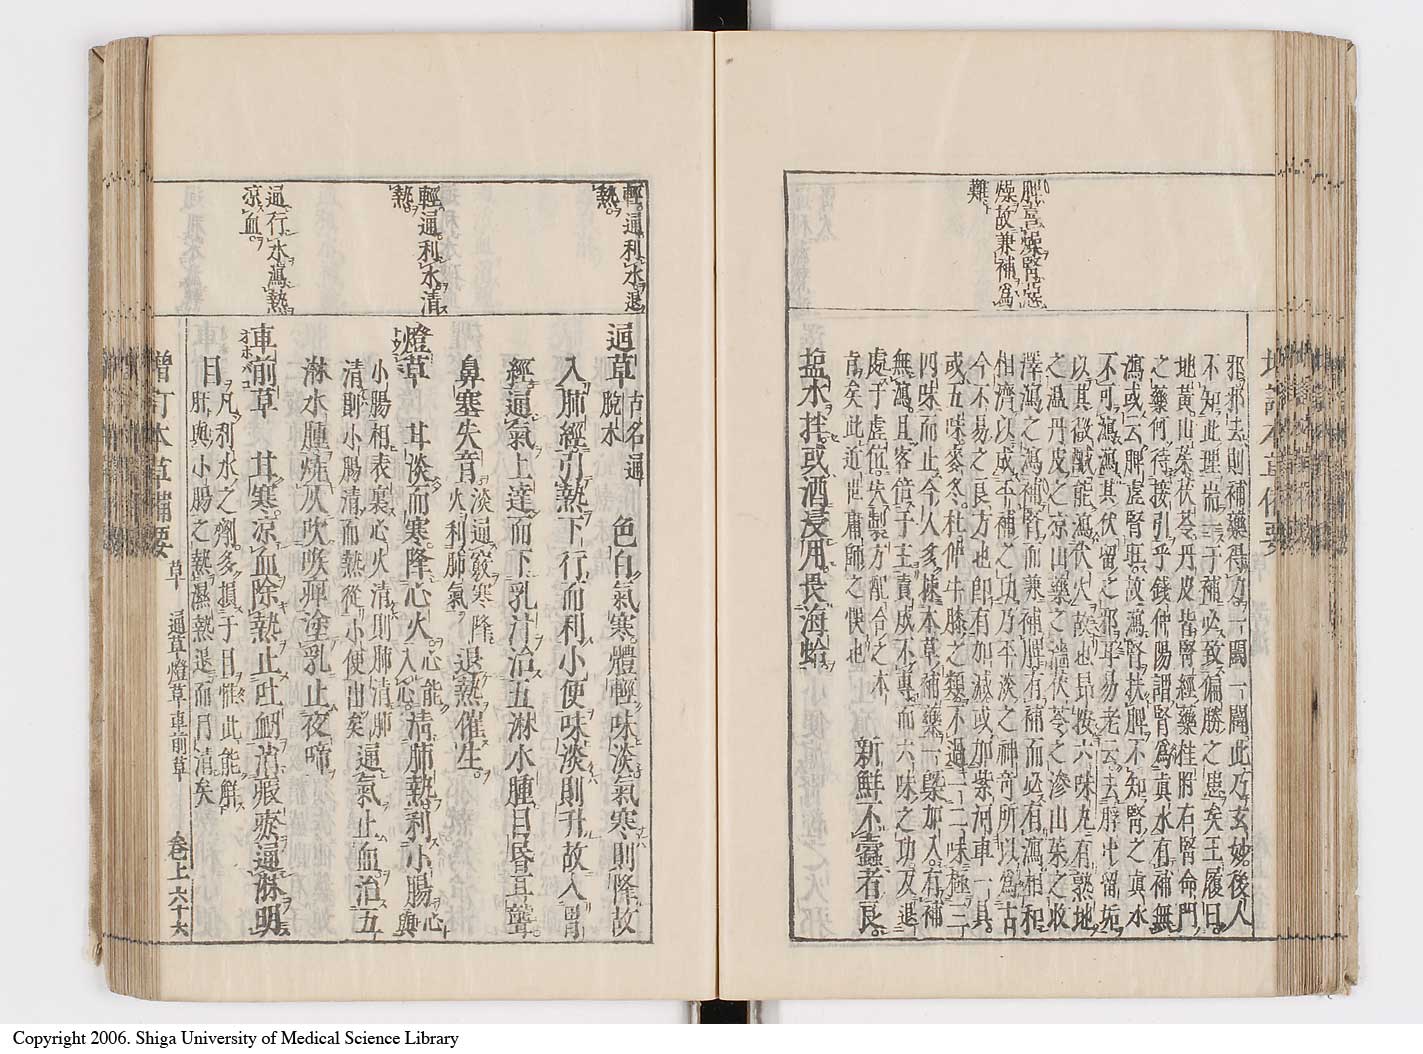 脾喜燥腎惡
燥故兼補爲
難
邪邪去則補藥得力一闢一闔此乃玄妙後人
不知此理耑一于補必致偏勝之患矣王履曰
地黃山茱茯苓丹皮皆腎經藥桂附右腎命門
之藥何待接引乎錢仲陽謂腎爲眞水有補無
瀉或云脾虛腎旺故瀉腎扶脾不知腎之眞水
不可瀉瀉其伏留之邪耳易老云去脬中留垢
以其微鹹能瀉伏水故也昂按六味丸有熟地
之溫丹皮之涼山藥之濇茯苓之滲山茱之收
澤瀉之瀉補腎而兼補脾有補而必有瀉相和
相濟以成平補之功乃平淡之神奇所以爲古
今不易之良方也卽有加減或加紫河車一具
或五味麥冬杜仲牛膝之類不過一二味極三
四味而止今人多拣本草補藥一槩加入有補
無瀉且客倍于主責成不專而六味之功反退
處于虛位失製方配合之本
旨矣此道世庸師之悞也
新鮮不蠧者良
鹽水拌或酒浸用畏海蛤
輕通利水退
熱
輕通利水清
熱
通行水瀉熱
涼血
通草
古名通
脫木
色白氣寒體輕味淡氣寒則降故
入肺經引熱下行而利小便味淡則升故入胃
經通氣上達而下乳汁治五淋水腫目昏耳聾
鼻塞失音
淡通竅寒降
火利肺氣
退熱催生
燈草
甘淡而寒降心火
心能
入心
清肺熱利小腸
心
與
小腸相表裏心火清則肺清肺
清則小腸清而熱從小便出矣
通氣止血治五
淋水腫燒灰吹喉痺塗乳止夜啼
車前草
オホバコ
甘寒涼血除熱止吐衂消瘕瘀通淋明
目
凡利水之劑多損于目惟此能解
肝與小腸之熱濕熱退而目清矣
增訂本草備要
草
通草燈草車前草
卷上六十六